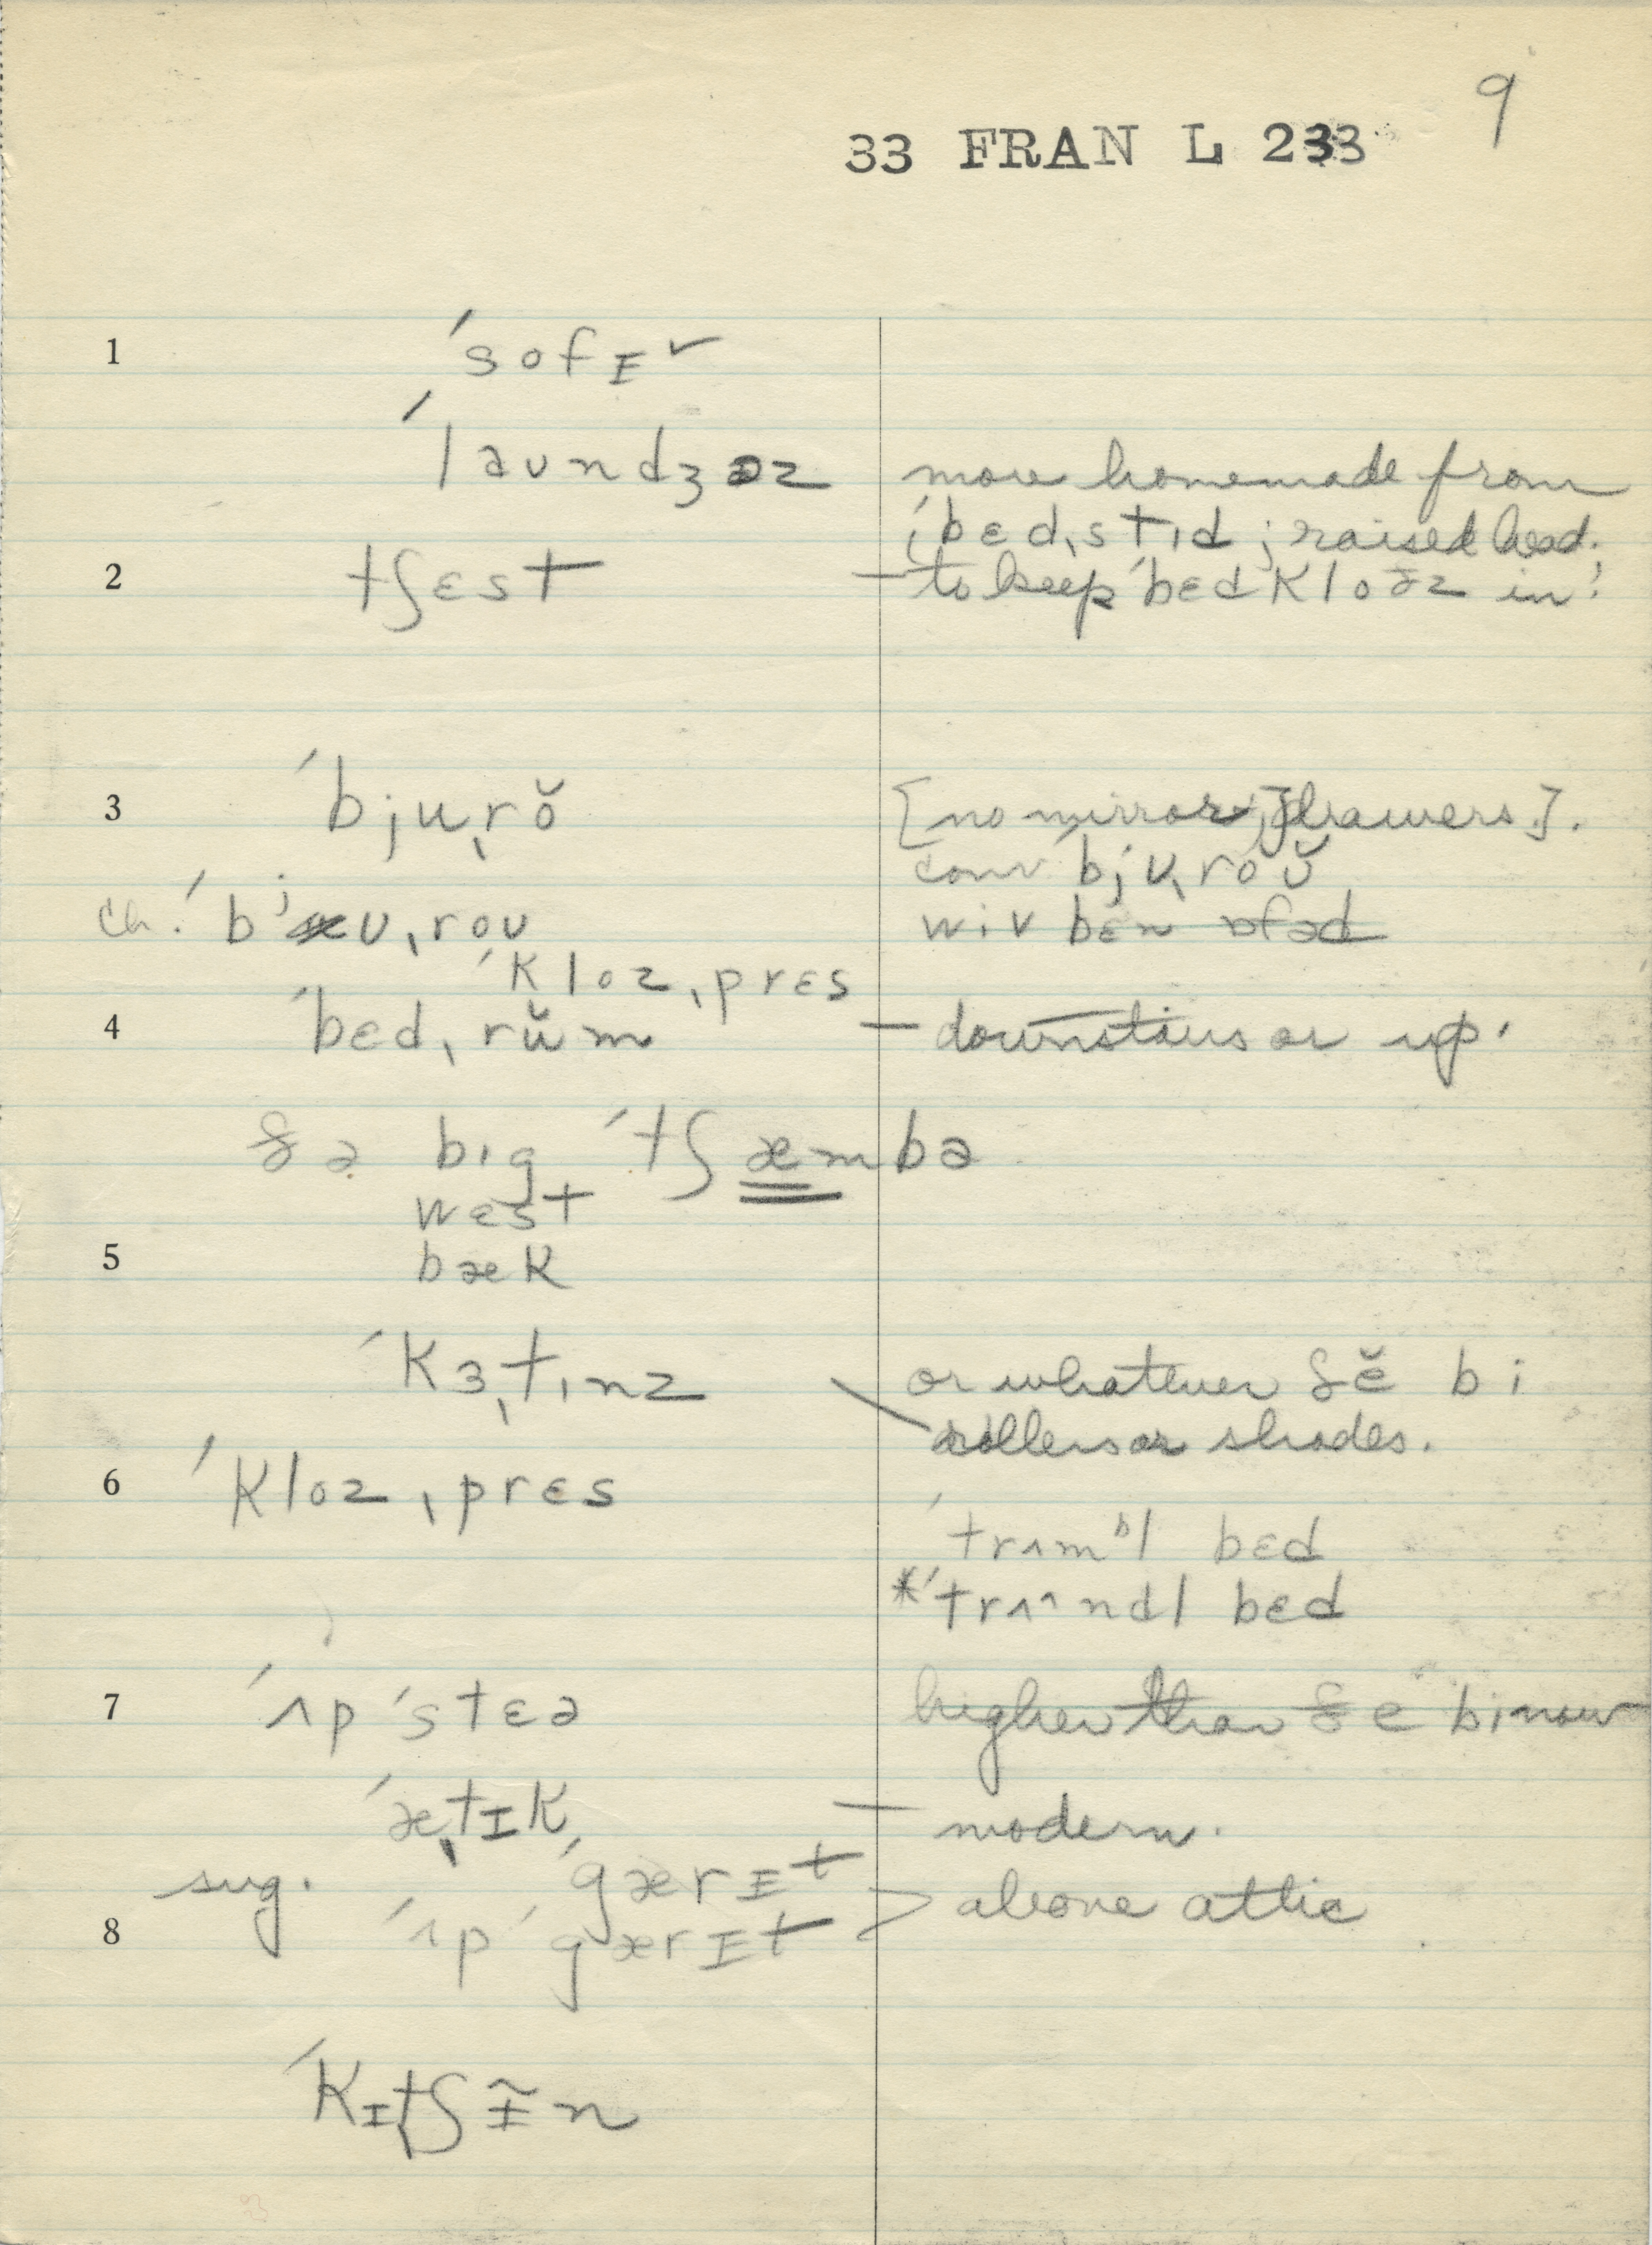 9
33 FRAN L 233
1 ˈsofɪ ✓
ˈlaundʒəz more homemade from
ˈbɛdˌstɪd ; raised head;
2 tʃɛst — to keep ˈbɛdkloðz in.
3 ˈbjuˌrŏ [no mirror; drawers].
conv. ˈbjʊˌroʊ̆
ch. ˈbʲʊˌroʊ wiv bɛn
ˈklozˌprɛs
4 ˈbɛdˌrŭm — downstairs or up.
ðə bɪg ˈtʃæmbə
wɛst
5 bæk
ˈkɜˌtɪnz \ or whatever ðĕ bi
rollers or shades.
6 ˈklozˌprɛs
ˈtrʌmᵇl bɛd
*ˈtrʌ^ndl bɛd
7 ˈʌpˈstɛə higher than ðe bi now
ˈæˌtɪk — modern.
sug. ˈgærɪt > above attic
8 ˈʌpˈgærɪt
ˈkɪˌtʃɪ̃n